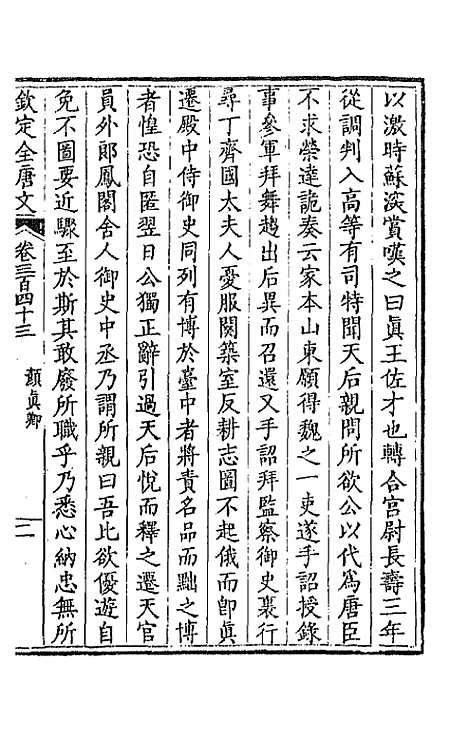 以激時蘇深賞嘆之曰眞王佐才也轉合宮尉長壽三年
從調判入高等有司特聞天后親問所欲公以代爲唐臣
不求榮達詭奏云家本山東願得魏之一吏遂手詔授錄
事參軍拜舞趨出后異而召還又手詔拜監察御史裏行
尋丁齊國太夫人憂服闋築室反耕志圖不起俄而卽眞
遷殿中侍御史同列有博於臺中者將責名品而黜之博
者惶恐自匿翌日公獨正辭引過天后悅而釋之遷天官
員外郎鳳閣舍人御史中丞乃謂所親曰吾比欲優遊自
免不圖要近驟至於斯其敢廢所職乎乃悉心納忠無所
欽定全唐文 卷三百四十三 顏眞卿 二